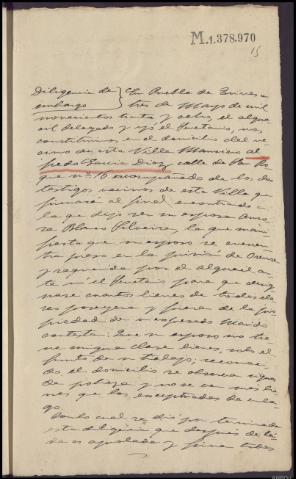 M.1.378.970
15
Diligencia de } En Puebla de Trives a
embargo } tres de Mayo de mil
novecientos treinta y ocho, el algua
cil delegado y yo el Secretario, nos
constituimos en el domicilio del ve
cino de esta Villa Mauricio Al
fredo García Diaz, calle de San Ro
que nº 16 acompañado de los dos
testigos vecinos de esta Villa que
firmarán al final, encontrando a
la que dijo ser su esposa
Blanco la que mani
festa que su esposo se encuen
tra preso en la prisión de Orense
y requerida por el alguacil an
te mi el Secretario para que desig
nase cuantos bienes de todas cla
ses poseyera y fueran de la pro
piedad de su referido Marido
contesta: Que su esposo no tie
ne ninguna clase bienes, solo el
fruto de su trabajo,
do el domicilio se observa signos
de pobreza y no se ven más bie
nes que los exceptuados de embar
go.
Con lo cual se dió por terminada
esta diligencia que después de leí
da es aprobada y firman todos